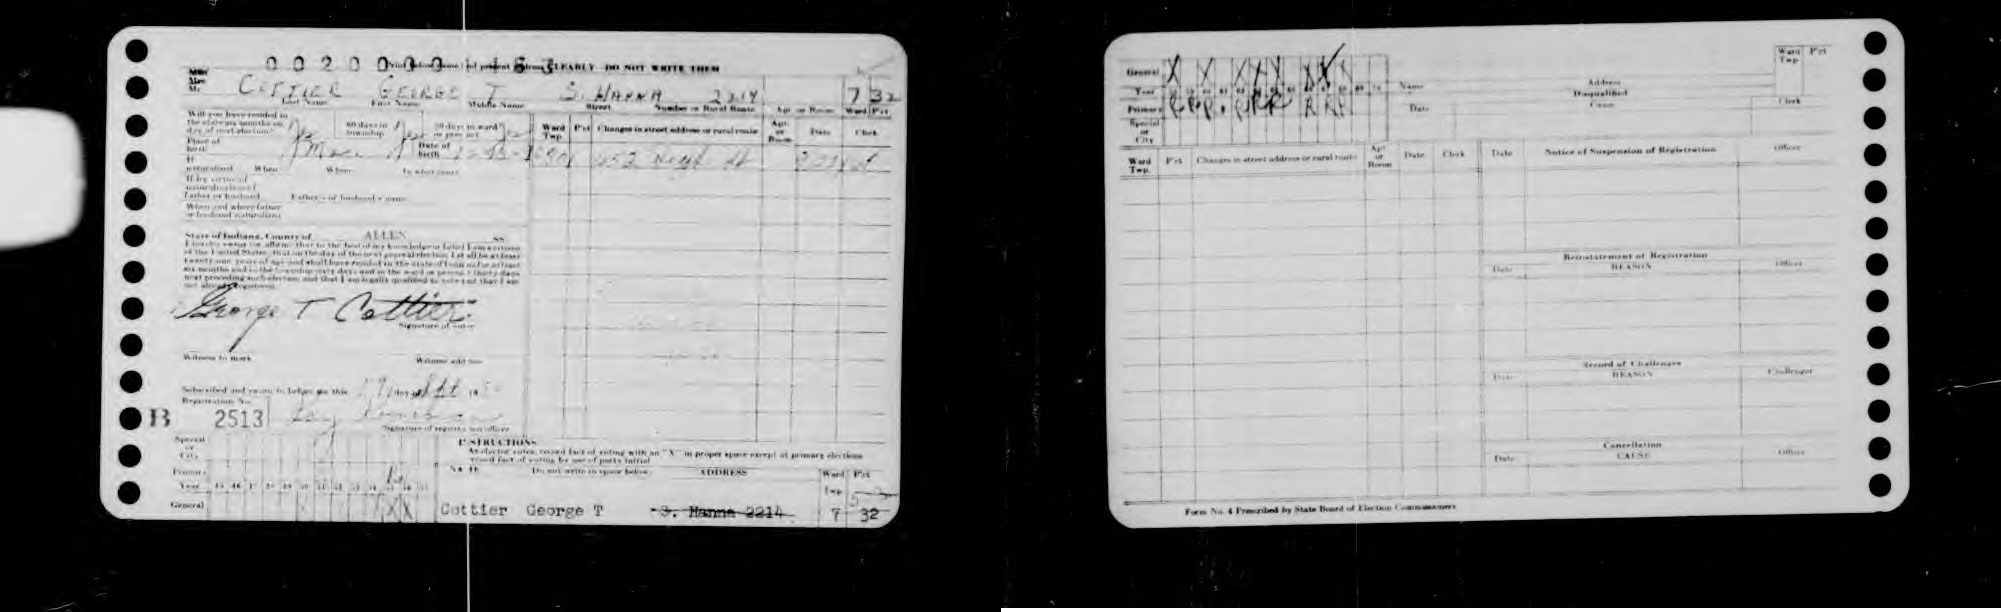 0 0 2 0 0 0 0
CLEARLY DO NOT WRITE THEM
Miss
Mrs
Mr COTTIER GEORGE T S. HANNA 2214 7 32
Last Name First Name Middle Name Street Number or Rural Route Apt or Room Ward Pct
Will you have resided in the state six months on day of next election? Yes 60 days in township Yes 30 days in ward or precinct Yes
Ward Twp Pct Changes in street address or rural route Apt or Room Date Clerk
Place of birth Date of birth
If naturalized When Where In what court
If by virtue of naturalization of father or husband Father's or husband's name
When and where father or husband naturalized
State of Indiana, County of ALLEN SS
I hereby swear (or affirm) that to the best of my knowledge or belief I am a citizen
of the United States, that on the day of the next general election I shall be at least
twenty-one years of age and shall have resided in the state of Indiana for at least
six months and in the township sixty days and in the ward or precinct thirty days
next preceding such election and that I am legally qualified to vote and that I am
not already registered.
George T Cottier
Signature of voter
Witness to mark Witness address
Subscribed and sworn to before me this day 19
Registration No.
B 2513
Signature of registration officer
Special or City
Primary
Year 45 46 47 48 49 50 51 52 53 54
General X X
INSTRUCTIONS
As elector votes, record fact of voting with an "X" in proper space except at primary elections
record fact of voting by use of party initial
NAME Do not write in space below ADDRESS Ward Pct
Twp
Cottier George T S. Hanna 2214 7 32
General X X X X X X X
Year
Primary R R R R R R R R R
Special or City
Name Address Ward Twp Pct
Disqualified
Date Cause Clerk
Ward Twp. Pct Changes in street address or rural route Apt or Room Date Clerk
Date Notice of Suspension of Registration Officer
Reinstatement of Registration
Date REASON Officer
Record of Challenges
Date REASON Challenger
Cancellation
Date CAUSE Officer
Form No. 4 Prescribed by State Board of Election Commissioners